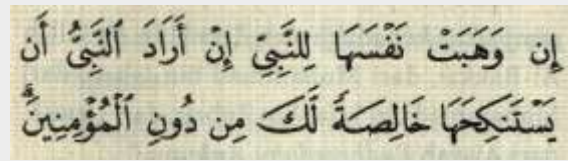 إِن وَهَبَتْ نَفْسَهَا لِلنَّبِيِّ إِنْ أَرَادَ ٱلنَّبِىُّ أَن
يَسْتَنكِحَهَا خَالِصَةً لَّكَ مِن دُونِ ٱلْمُؤْمِنِينَۗ